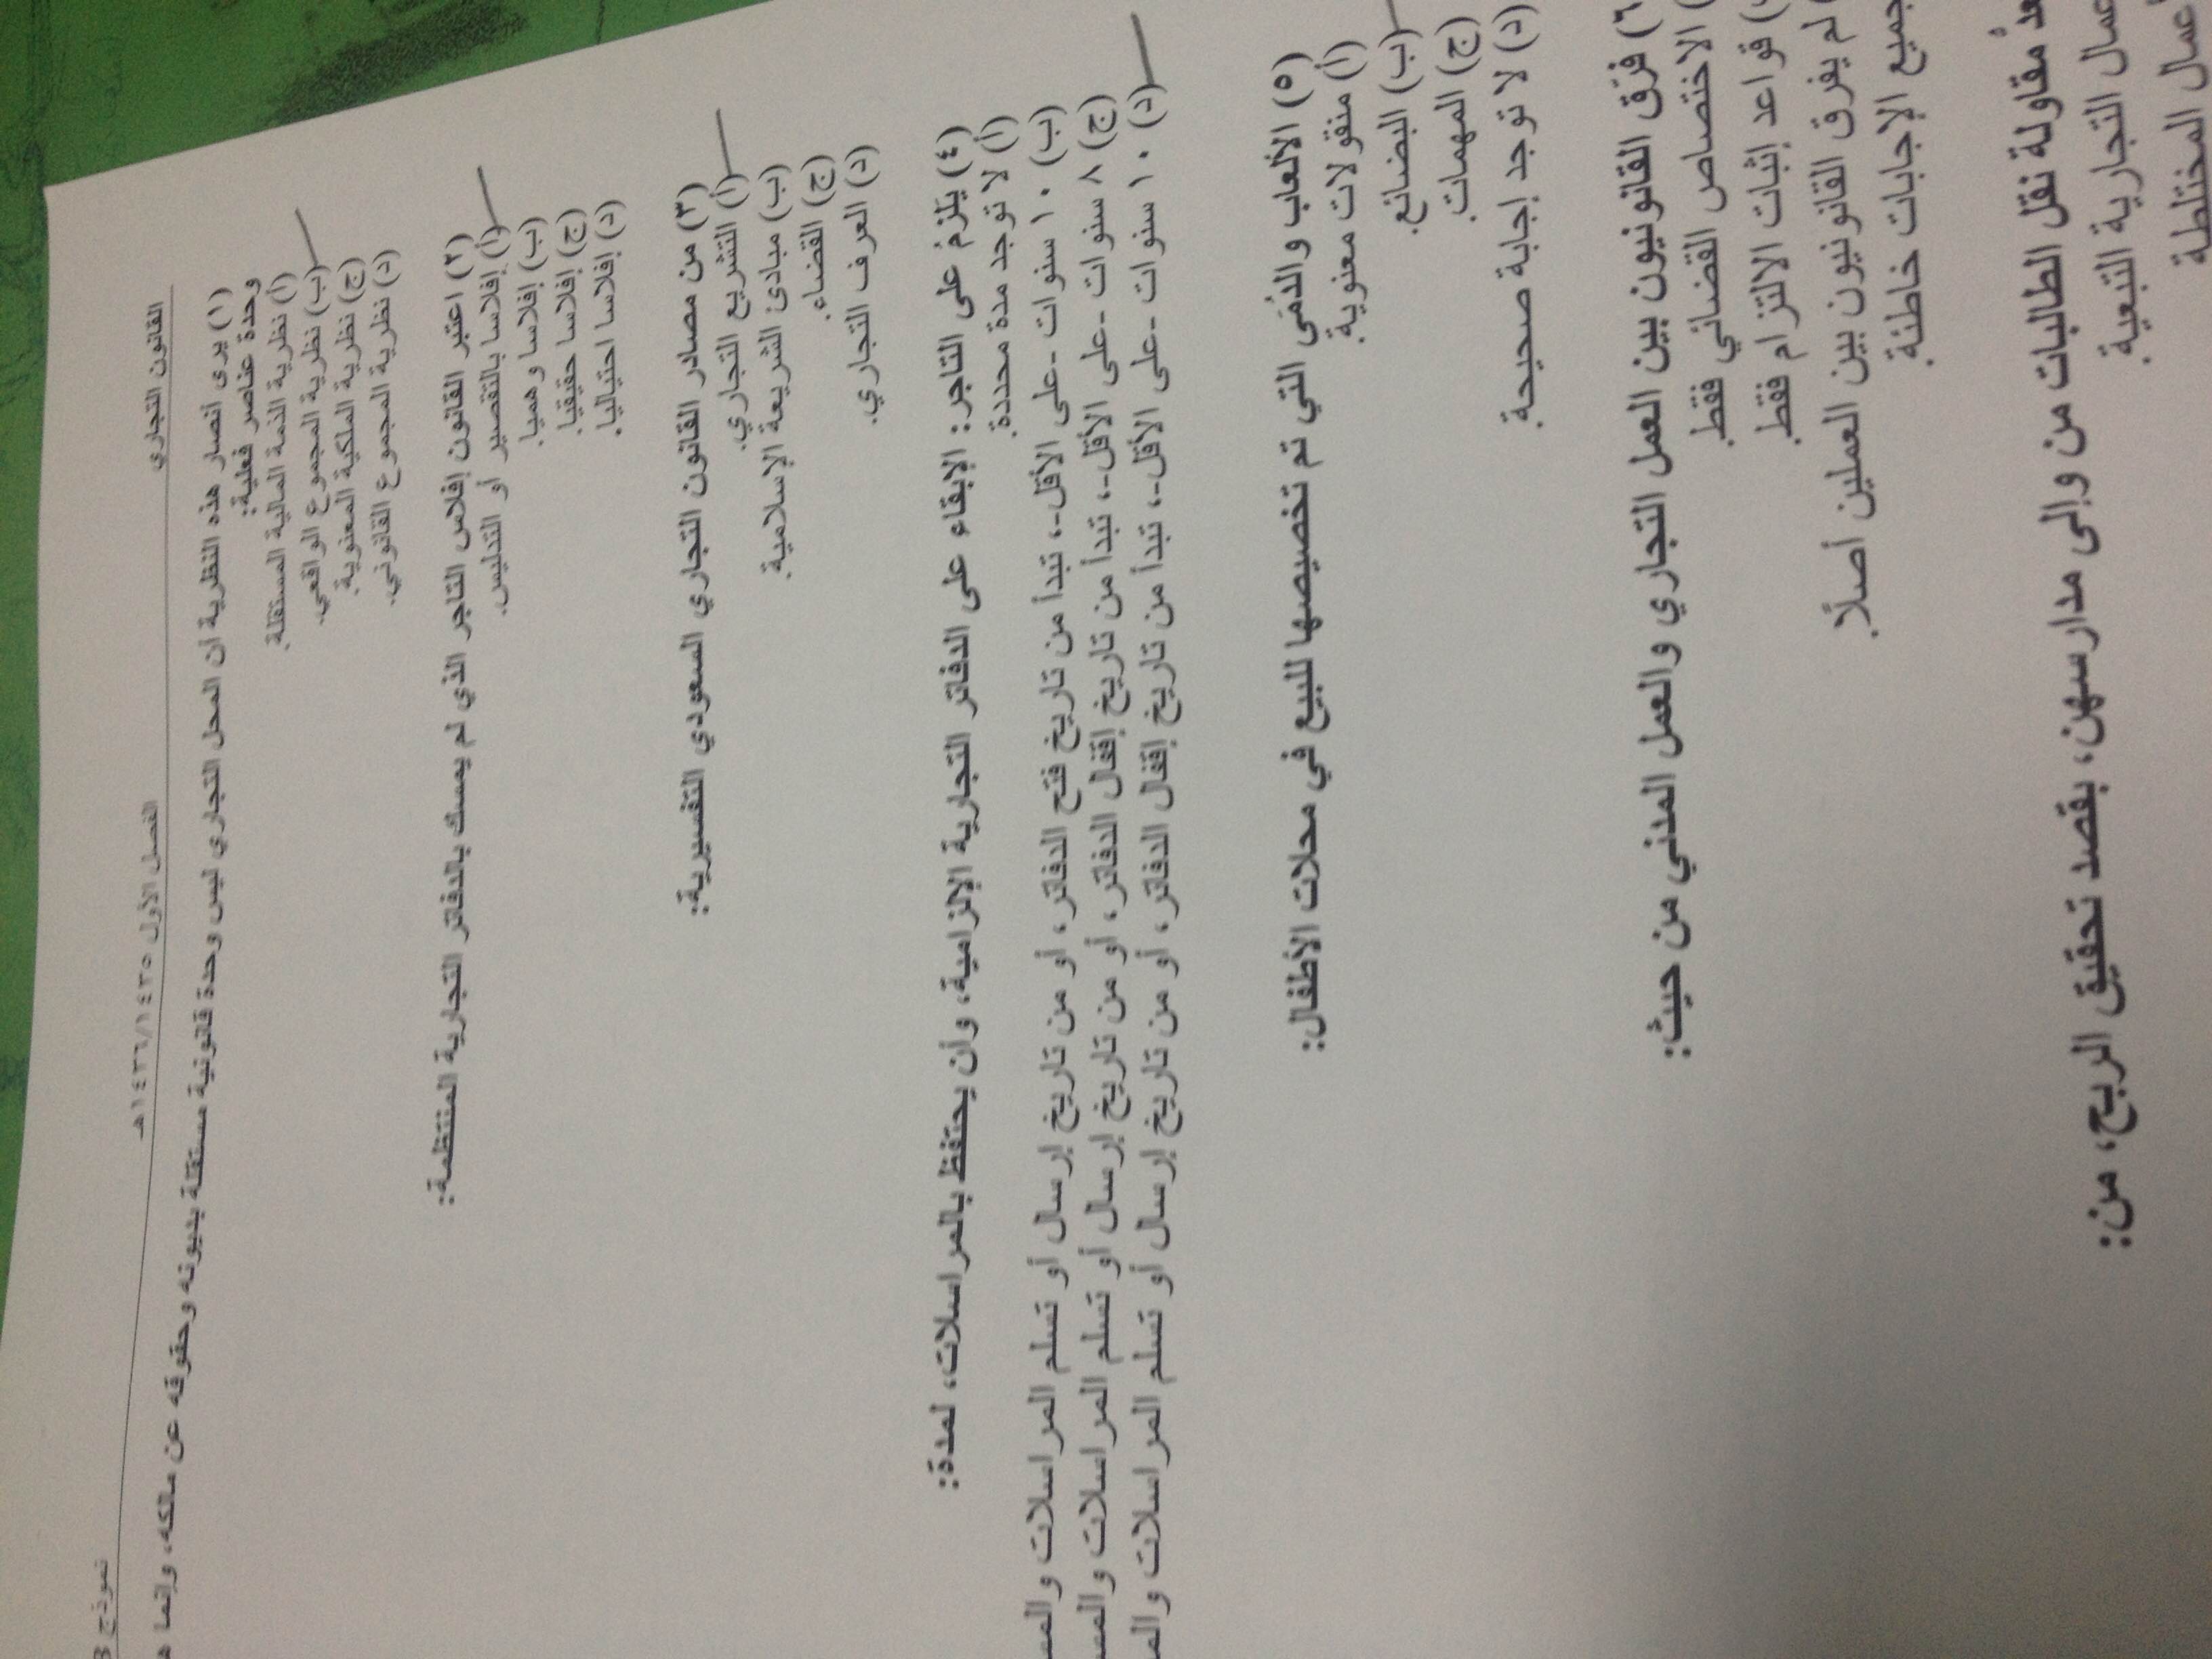 القانون التجاري الفصل الأول ١٤٣٦/١٤٣٥هـ نموذج B
(١) يرى أنصار هذه النظرية أن المحل التجاري ليس وحدة قانونية مستقلة بديونه وحقوقه عن مالكه، وإنما
وحدة عناصر فعلية:
(أ) نظرية الذمة المالية المستقلة.
(ب) نظرية المجموع الواقعي.
(ج) نظرية الملكية المعنوية.
(د) نظرية المجموع القانوني.
(٢) اعتبر القانون إفلاس التاجر الذي لم يمسك بالدفاتر التجارية المنتظمة:
(أ) إفلاسا بالتقصير أو التدليس.
(ب) إفلاسا وهميا.
(ج) إفلاسا حقيقيا.
(د) إفلاسا احتياليا.
(٣) من مصادر القانون التجاري السعودي التفسيرية:
(أ) التشريع التجاري.
(ب) مبادئ الشريعة الإسلامية.
(ج) القضاء.
(د) العرف التجاري.
(٤) يَلزمُ على التاجر: الإبقاء على الدفاتر التجارية الإلزامية، وأن يحتفظ بالمراسلات، لمدة:
(أ) لا توجد مدة محددة.
(ب) ١٠ سنوات -على الأقل-، تبدأ من تاريخ فتح الدفاتر، أو من تاريخ إرسال أو تسلم المراسلات
(ج) ٨ سنوات -على الأقل-، تبدأ من تاريخ إقفال الدفاتر، أو من تاريخ إرسال أو تسلم المراسلات
(د) ١٠ سنوات -على الأقل-، تبدأ من تاريخ إقفال الدفاتر، أو من تاريخ إرسال أو تسلم المراسلات
(٥) الألعاب والدُمَى التي تم تخصيصها للبيع في محلات الأطفال:
(أ) منقولات معنوية
(ب) البضائع.
(ج) المهمات.
(د) لا توجد إجابة صحيحة.
(٦) فرَق القانونيون بين العمل التجاري والعمل المدني من حيث:
الاختصاص القضائي فقط.
قواعد إثبات الالتزام فقط.
لم يفرق القانونيون بين العملين أصلًا.
جميع الإجابات خاطئة.
مقاولة نقل الطالبات من وإلى مدارسهن، بقصد تحقيق الربح، من:
التجارية التبعية
المختلطة